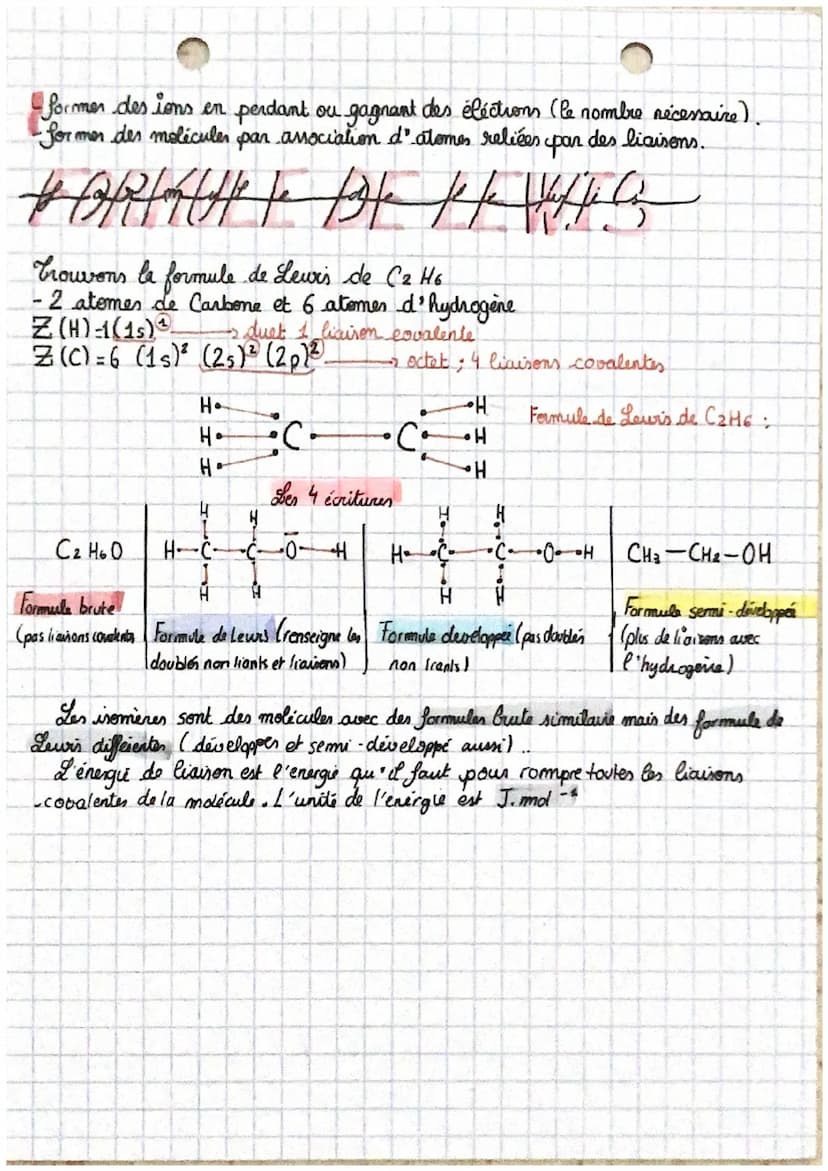 - former des ions en perdant ou gagnant des éléctrons (le nombre nécessaire).
- former des molécules par association d'atomes reliées par des liaisons.
FORMULE DE LEWIS
Trouvons la formule de Lewis de C2 H6
- 2 atomes de Carbone et 6 atomes d'hydrogène
Z (H)=1(1s)① → duet 1 liaison covalente
Z (C) = 6 (1s)² (2s)² (2p)² → octet ; 4 liaisons covalentes
Formule de Lewis de C2H6 :
H H
H C C H
H H
Les 4 écritures
H H H H
C2 H6O H-C-C-O-H H-C-C-O-H CH3-CH2-OH
H H H H
Formule brute
(pas liaisons covalentes
Formule de Lewis (renseigne les
doublés non liants et liaisons)
Formule developpée (pas doublés
non liants)
Formule semi-développée
(plus de liaisons avec
l'hydrogène)
Les isomères sont des molécules avec des formules brute similaire mais des formule de
Lewis différentes (développer et semi-développé aussi)..
L'énergie de liaison est l'energie qu'il faut pour rompre toutes les liaisons
covalentes de la molécule. L'unité de l'énergie est J.mol⁻¹